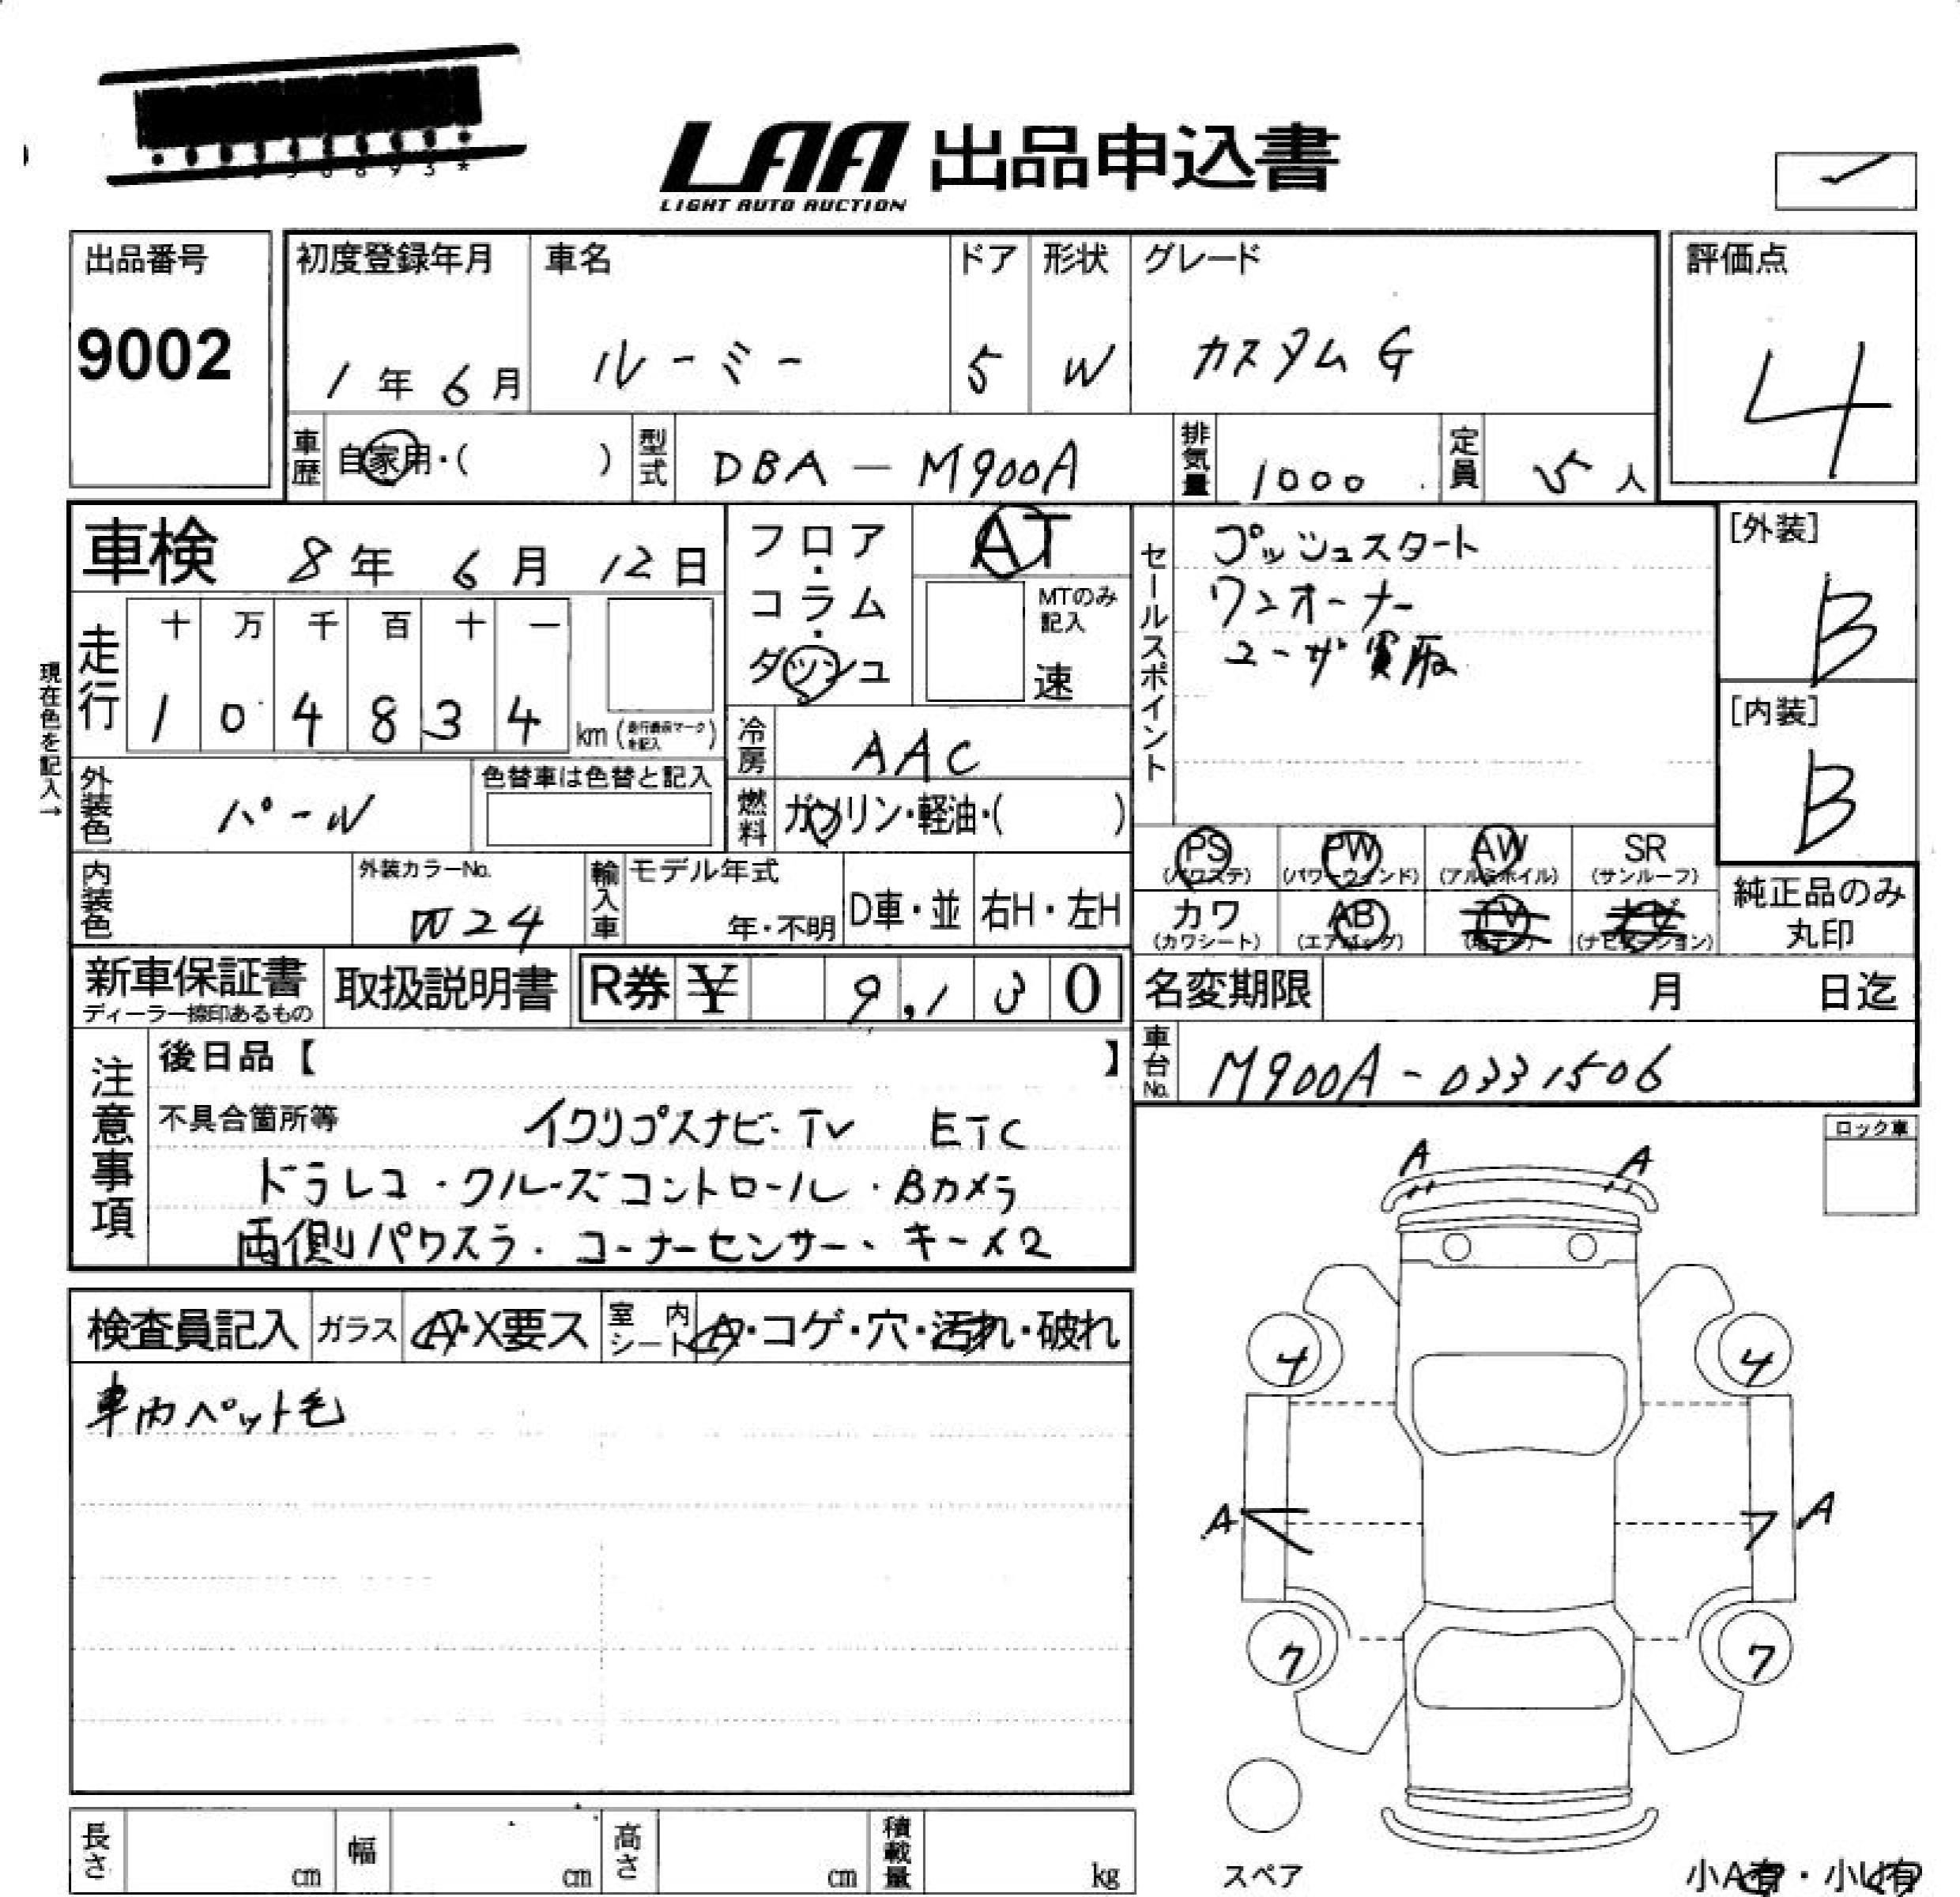 LAA 出品申込書
LIGHT AUTO AUCTION
出品番号
9002
初度登録年月
1年6月
車名
ルーミー
ドア
5
形状
W
グレード
カスタムG
評価点
4
車歴
自家用・( )
型式
DBA-M900A
排気量
1000
定員
5人
車検 8年 6月 12日
現在色を記入→
走行
十 万 千 百 十 一
1 0 4 8 3 4 km
外装色
パール
色替車は色替と記入
内装色
外装カラーNo.
W24
フロア・コラム・ダッシュ
AT
MTのみ記入
速
冷房
AAC
燃料
ガソリン・軽油・( )
輸入車
モデル年式
年・不明
D車・並
右H・左H
セールスポイント
プッシュスタート
ワンオーナー
ユーザ買取
[外装]
B
[内装]
B
PS (パワステ)
PW (パワーウィンド)
AW (アルミホイル)
SR (サンルーフ)
カワ (カワシート)
AB (エアバッグ)
純正品のみ丸印
新車保証書
ディーラー捺印あるもの
取扱説明書
R券 ¥ 9,130
名変期限 月 日迄
車台No.
M900A-0331506
注意事項
後日品【 】
不具合箇所等
イクリプスナビ・TV ETC
ドラレコ・クルーズコントロール・Bカメラ
両側パワスラ・コーナーセンサー・キー×2
ロック車
検査員記入
ガラス
A・X要ス
室内シート
A・コゲ・穴・汚れ・破れ
車内ペット毛
A A
4 4
A A
7 7
スペア
小A有・小U有
長さ cm
幅 cm
高さ cm
積載量 kg